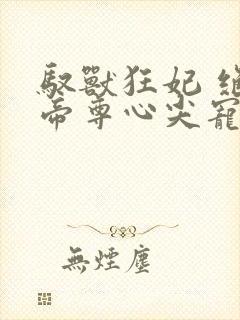 馭獸狂妃
帝尊心尖寵
無煙塵